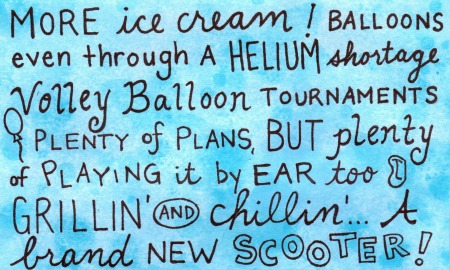 MORE ice cream! BALLOONS
even through A HELIUM shortage
Volley Balloon TOURNAMENTS
PLENTY of PLANS, BUT plenty
of PLAYING it by EAR too
GRILLIN' AND chillin'... A
brand NEW SCOOTER!